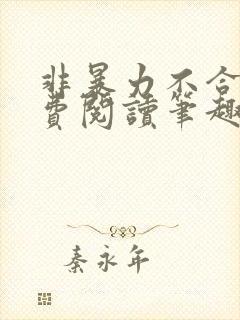 非暴力不合
費閱讀筆趣
秦永年